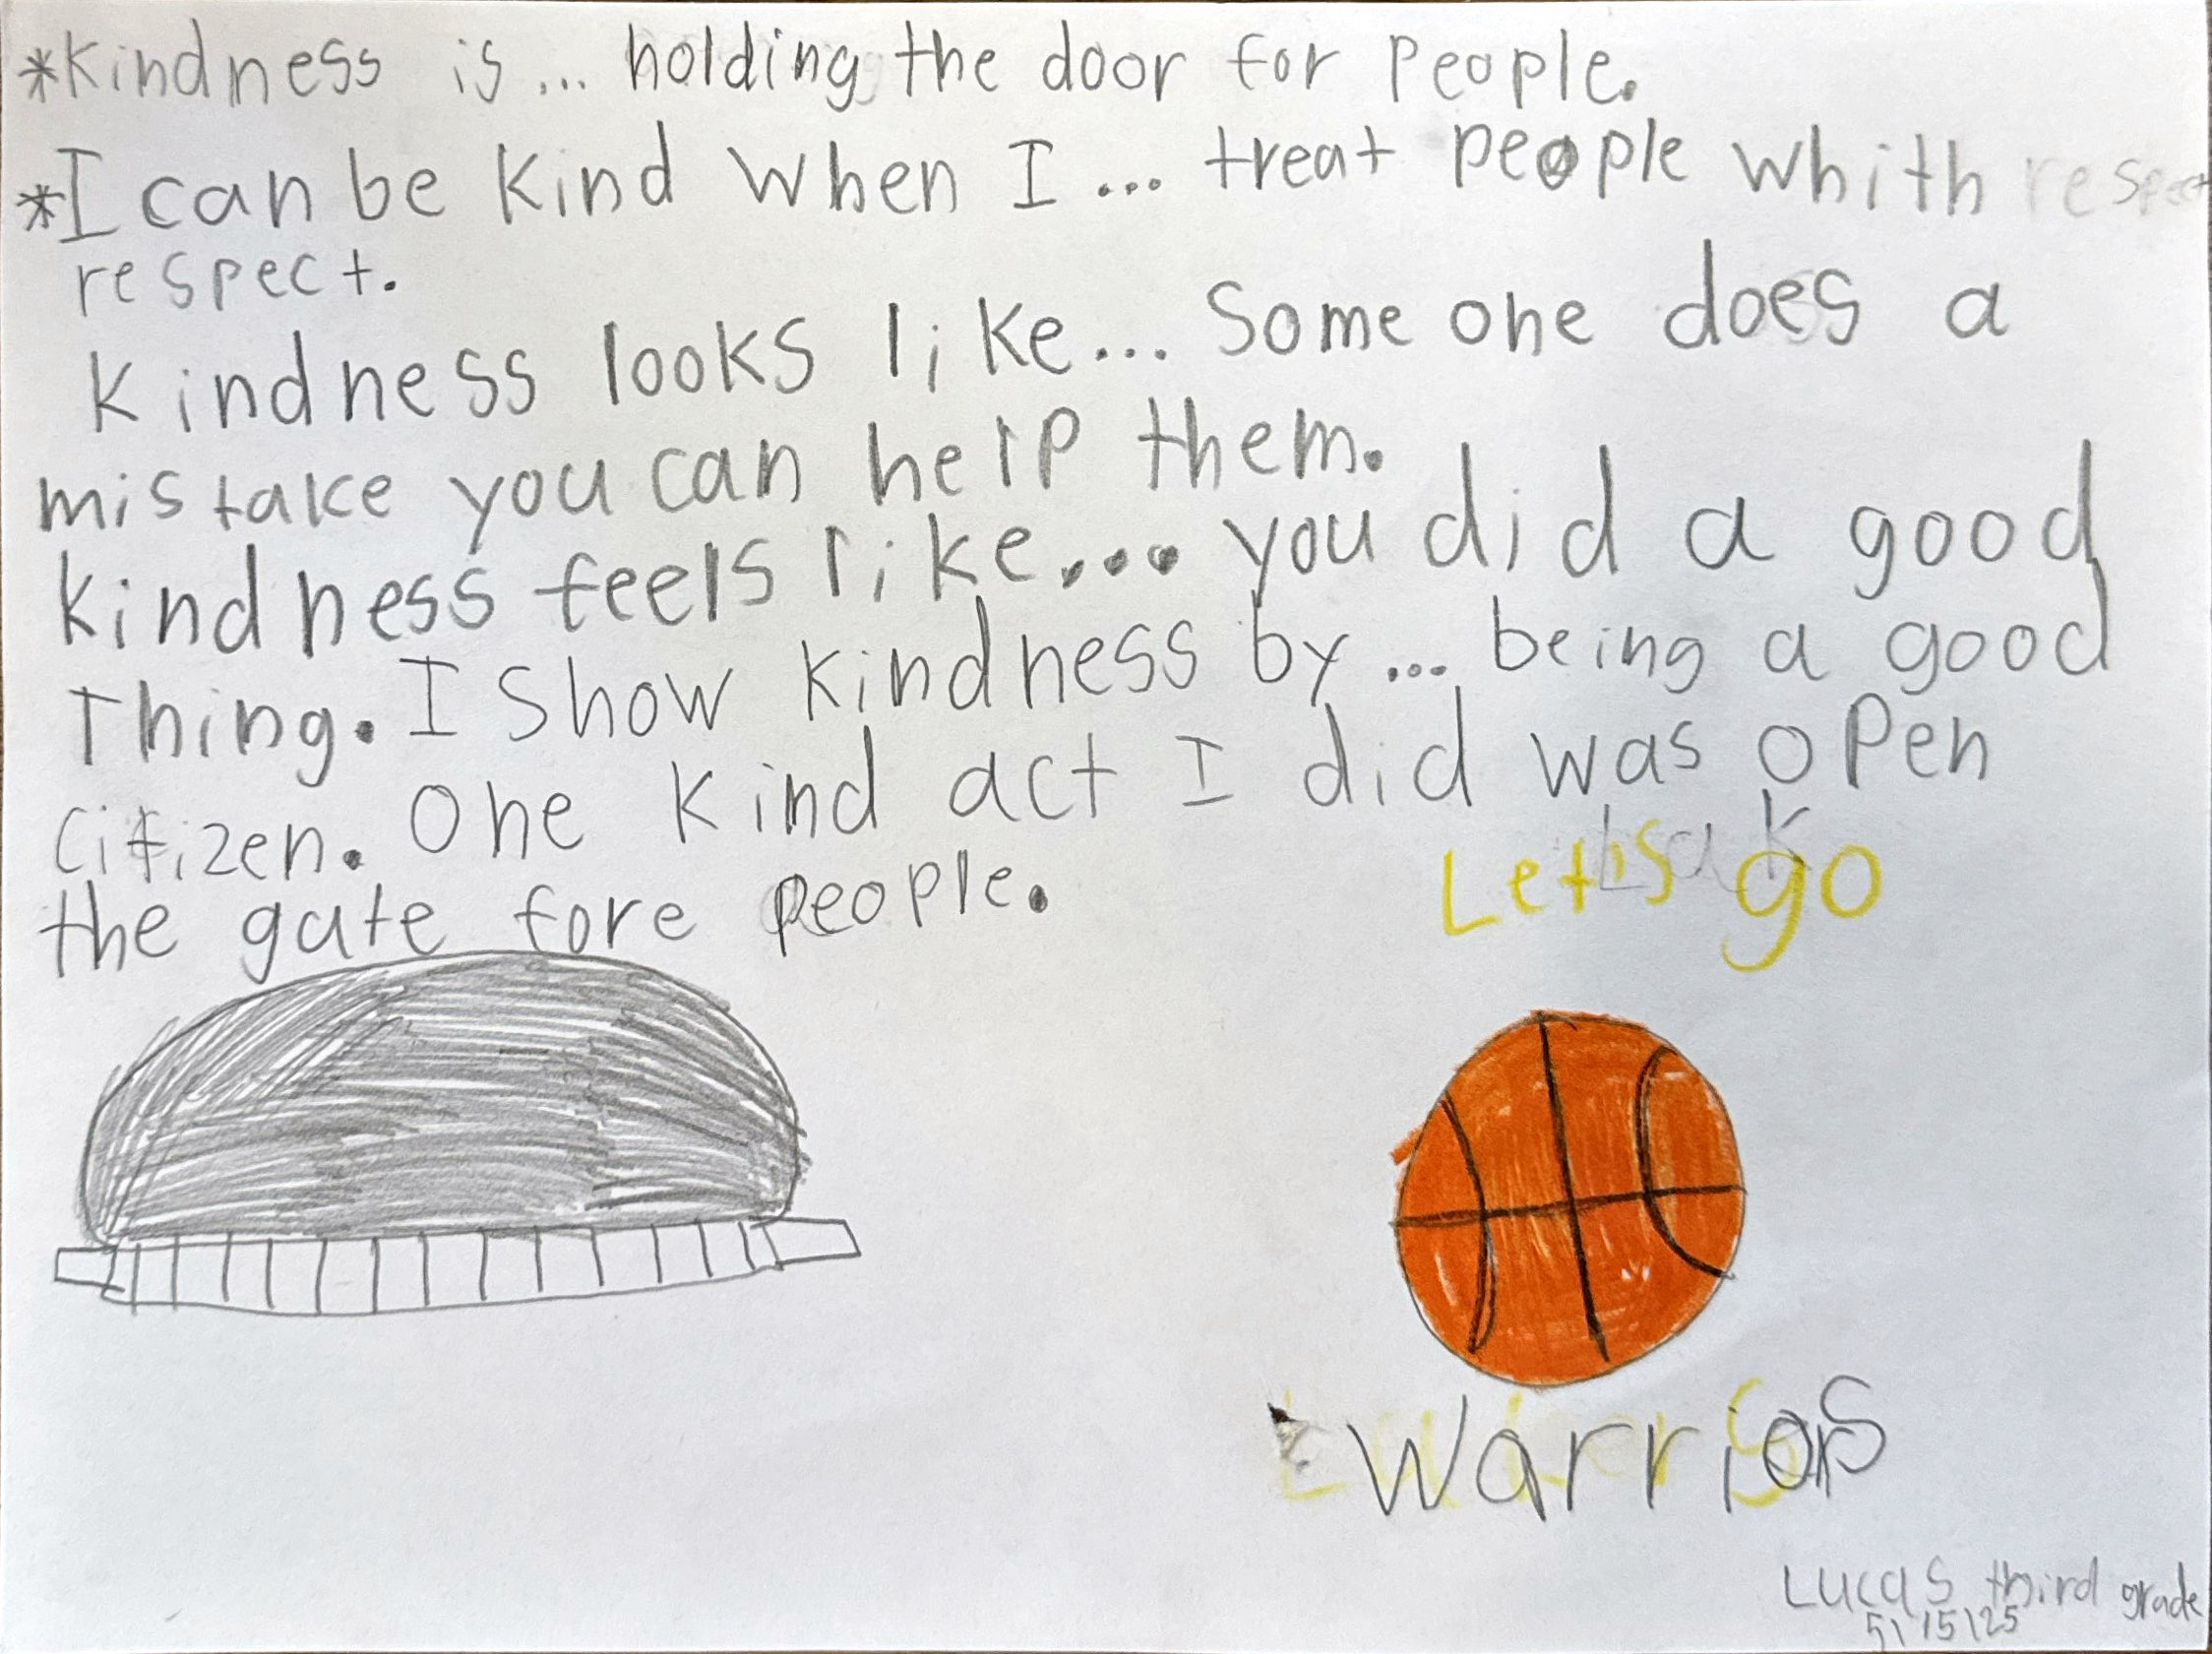 *Kindness is... holding the door for people.
*I can be kind when I... treat people whith respect
respect.
Kindness looks like... Some one does a
mistake you can help them.
kindness feels like... you did a good
Thing. I show kindness by... being a good
citizen. One kind act I did was open
the gate fore people.
Lak
Let's go
Warriors
Lucas third grade
5/15/25